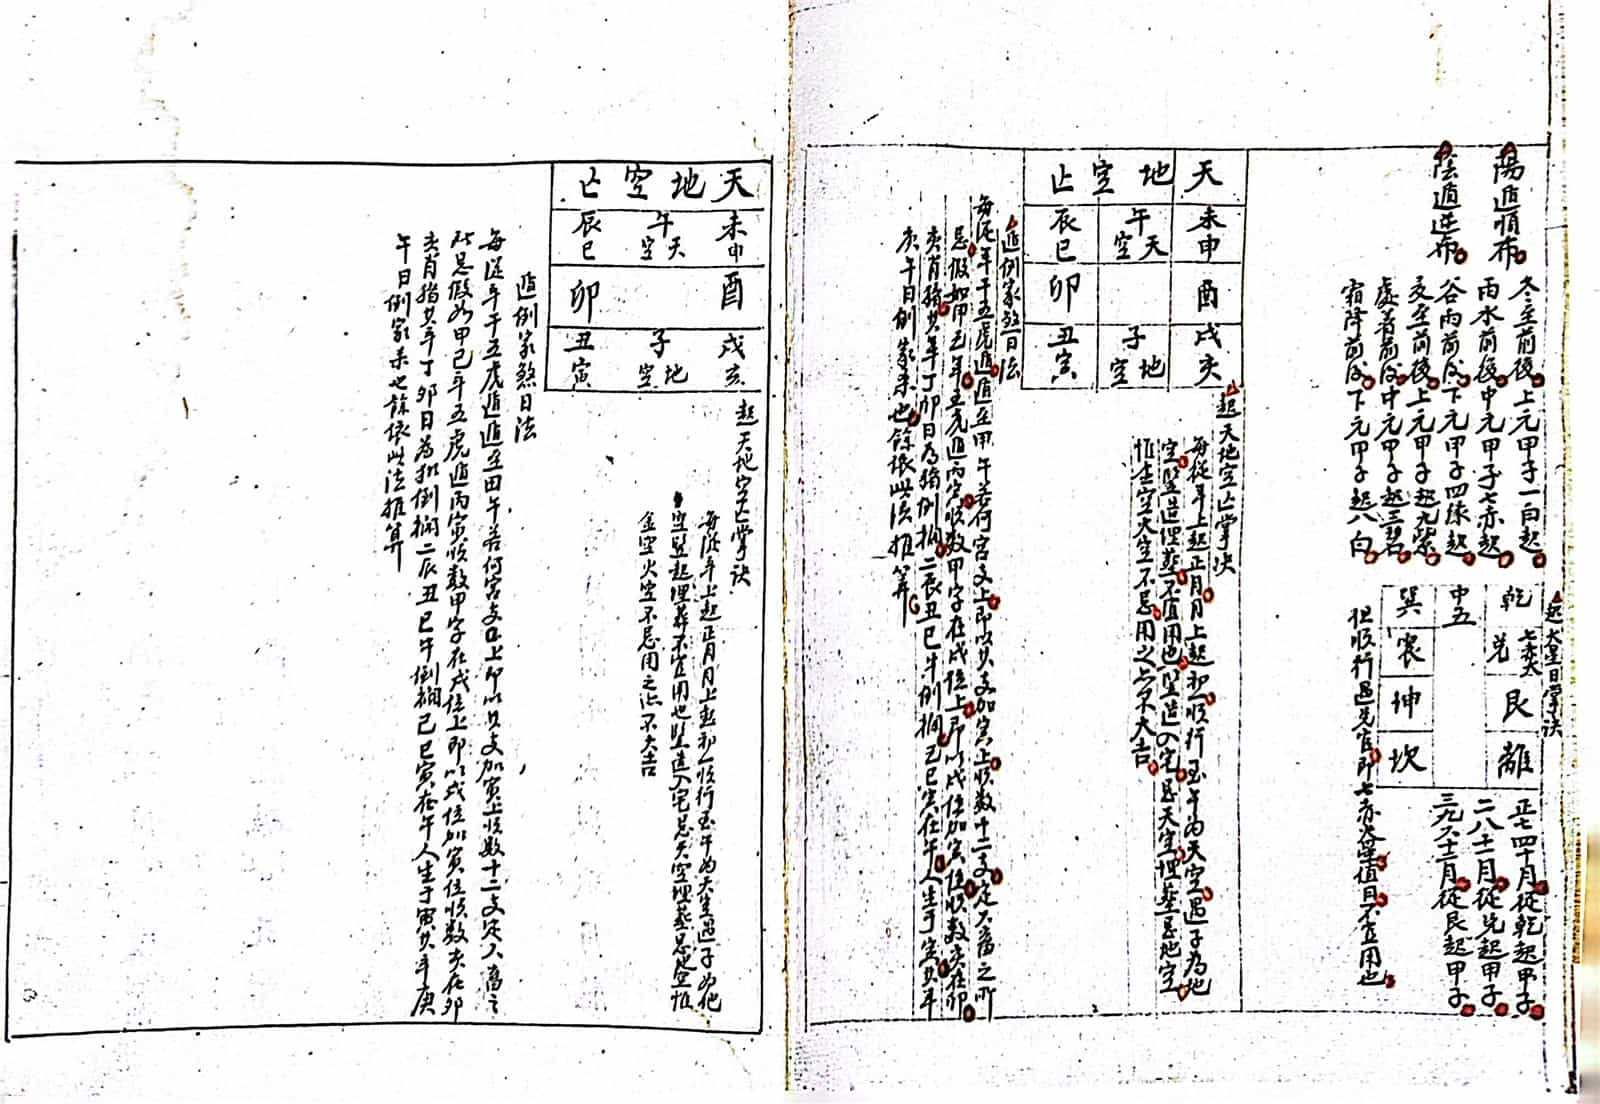 陽遁順布
陰遁逆布
冬至前後上元甲子一白起
雨水前後中元甲子七赤起
谷雨前后下元甲子四綠起
夏至前後上元甲子起九紫
處暑前后中元甲子起三碧
霜降前后下元甲子起八白
起 大 日掌訣
乾
兌
艮
離
中五
巽
震
坤
坎
正七四十月從乾起甲子
二八五十一月從兌起甲子
三九六十二月從艮起甲子
但順行遇 即七赤 值日不宜用也
天地空亡
未申
午天空
辰巳
酉
卯
戌亥
子地空
丑寅
起天地空亡掌決
每從年上起正月月上起初一順行至午為天空遇子為地
空豎造埋葬不宜用也豎造入宅忌天空埋葬忌地空
惟金空火空不忌用之 不大吉
遁例家煞日法
每從年干五虎遁遁至甲午若何宮支上即以其支加寅上順數十二支定人畜之所
忌假如甲己年五虎遁丙寅順數甲字在戌位上即以戌位加寅位順數亥在卯
亥肖猪其年丁卯日為猪例 二辰丑巳牛倒欄己巳寅在午人生于寅其年
庚午日例家 也餘依此法推算
天地空亡
未申
午天空
辰巳
酉
卯
戌亥
子地空
丑寅
起天地空亡掌訣
每從年上起正月月上起初一順行至午為天空遇子為地
空豎起埋葬不宜用也豎造入宅忌天空埋葬忌地空惟
金空火空不忌用之 不大吉
遁例家煞日法
每從年干五虎遁遁至甲午若何宮支 上即以其支加寅上順數十二支定人畜之
所忌假如甲己年五虎遁丙寅順數甲字在戌位上即以戌位加寅位順數亥在卯
亥肖猪其年丁卯日為 倒欄二辰丑巳牛倒欄己巳寅在午人生于寅其年庚
午日例家 也餘依此法推算